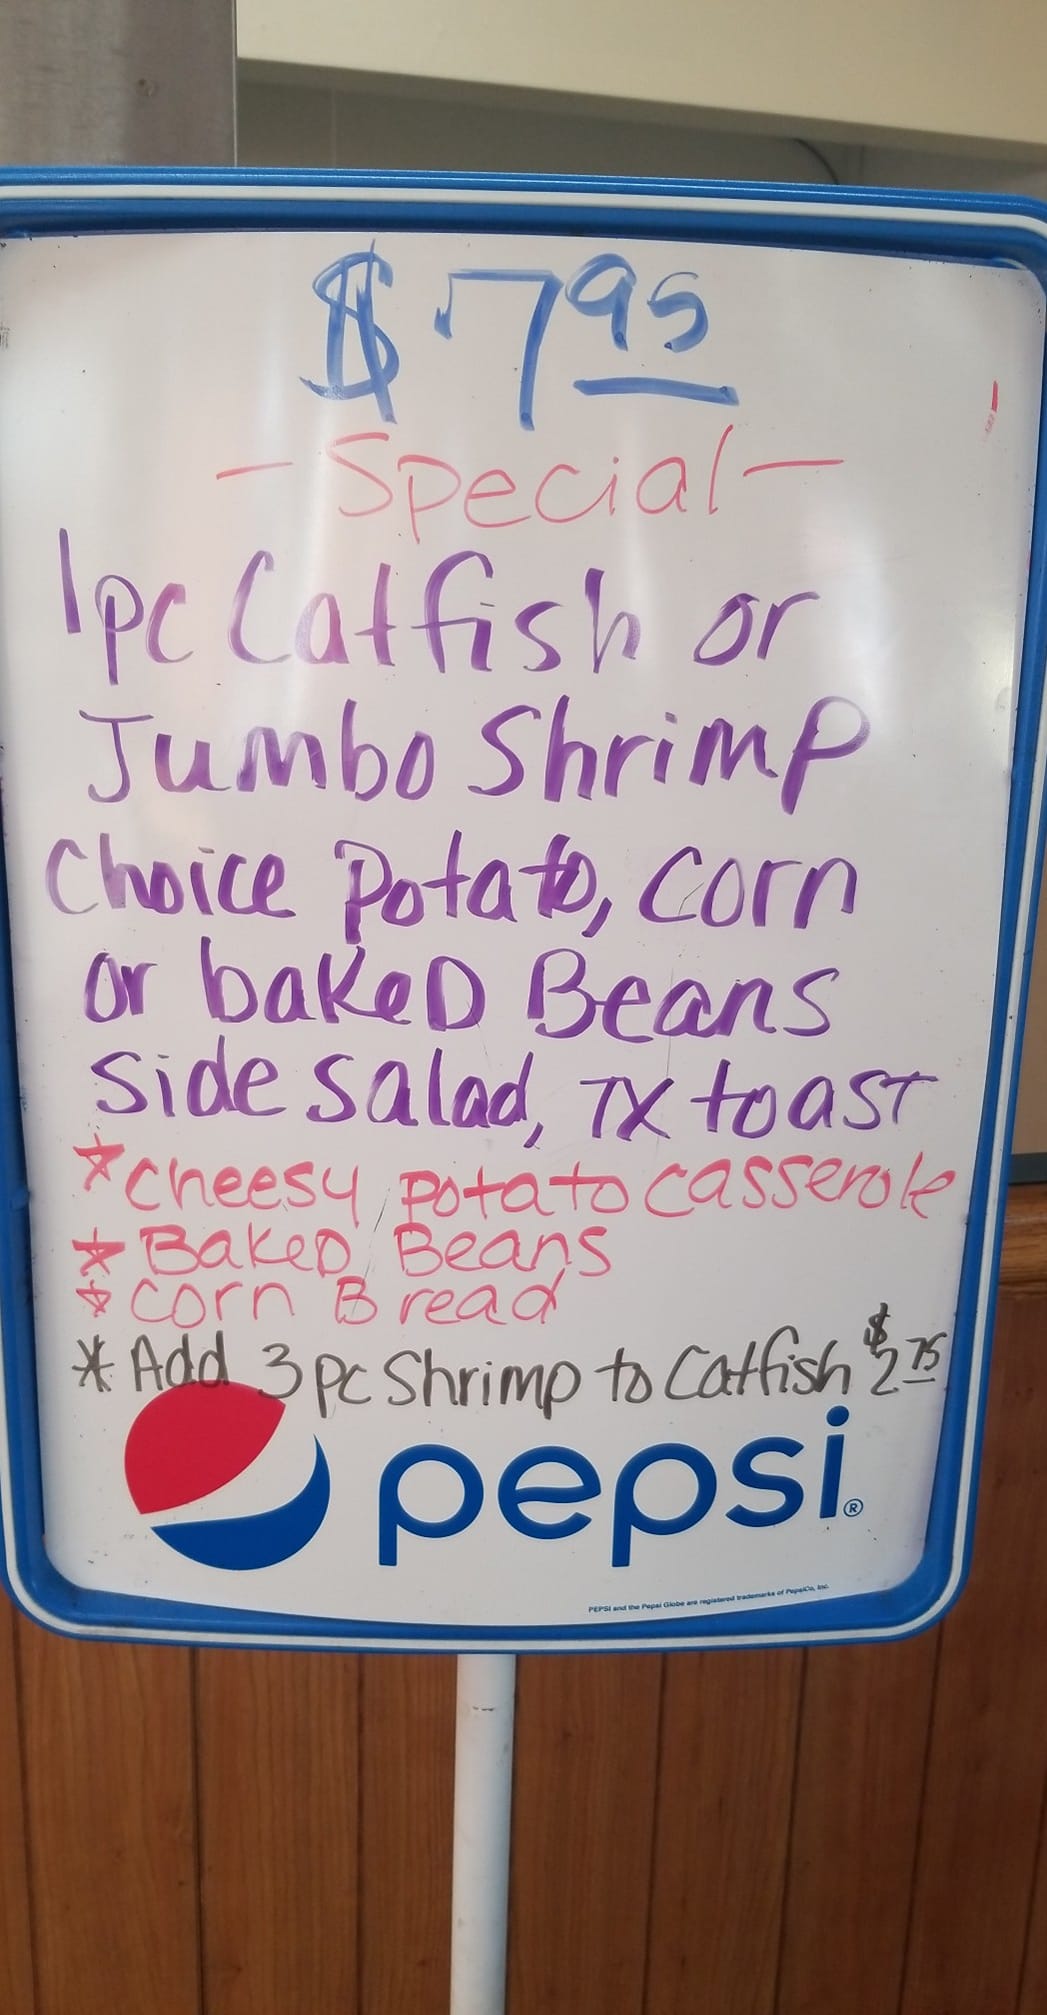 $7.95
-Special-
1pc Catfish or
Jumbo Shrimp
Choice Potato, Corn
or baKeD Beans
Side Salad, TX toast
*Cheesy Potato Casserole
*BaKeD Beans
*Corn Bread
*Add 3pc Shrimp to Catfish $2.75
pepsi®
PEPSI and the Pepsi Globe are registered trademarks of PepsiCo, Inc.